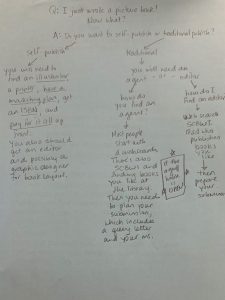 Q: I just wrote a picture book!
Now what?
A: Do you want to self-publish or traditional publish?
Self publish
you will need to
find an illustrator
a printer, have a
marketing plan, get
an ISBN, and
pay for it all up
front.
You also should
get an editor
and possibly a
graphic designer
for book layout.
Traditional
you will need an
agent - or - editor
how do
you find an
agent?
Most people
start with
There's also
SCBWI and
finding books
you like at
the library.
Then you need
to plan your
submission,
which includes
a query letter
and your ms.
how do I
find an editor
SCBWI
publishing
books
like
then
prepare
your
submission